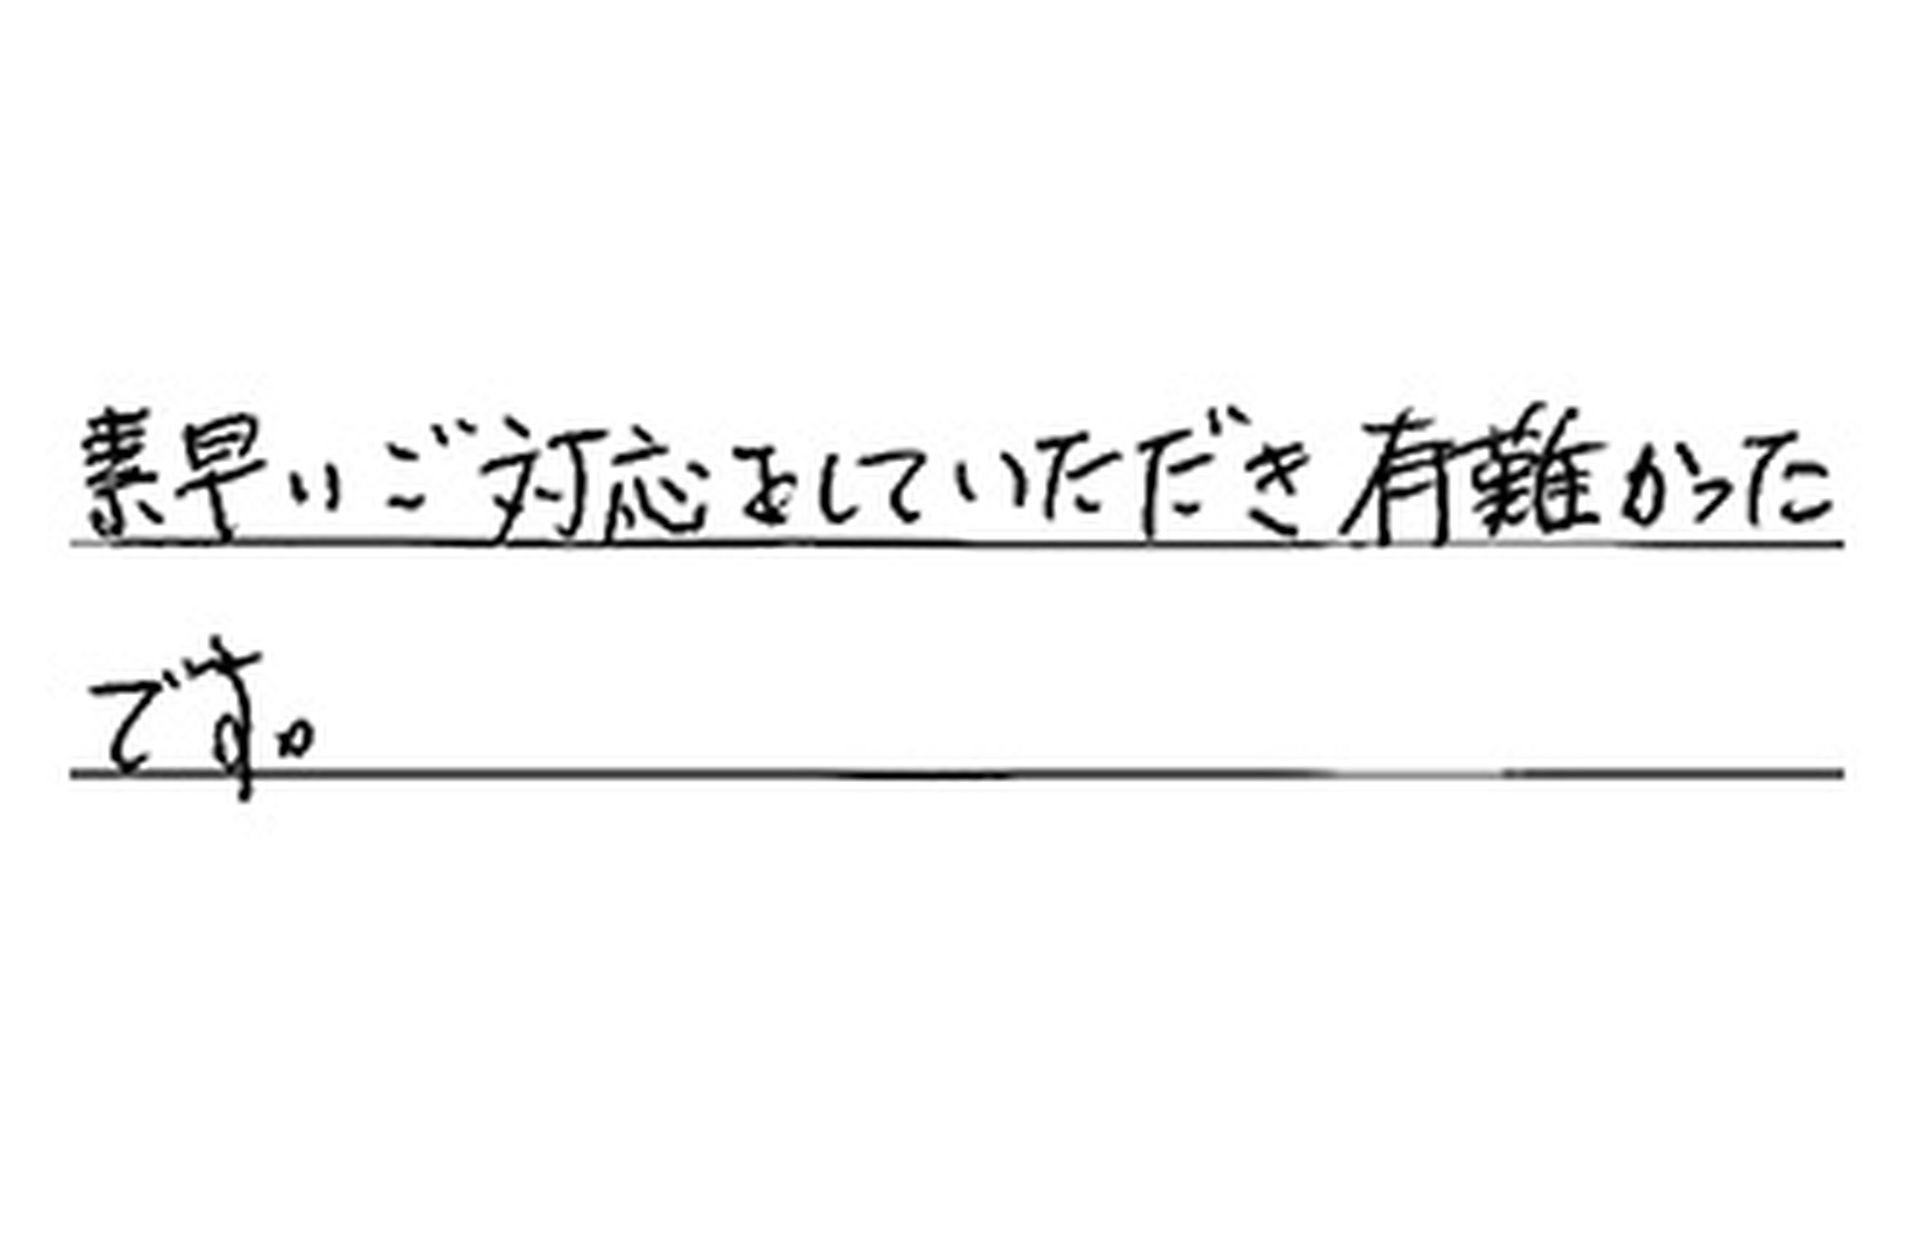 素早いご対応をしていただき有難かった
です。